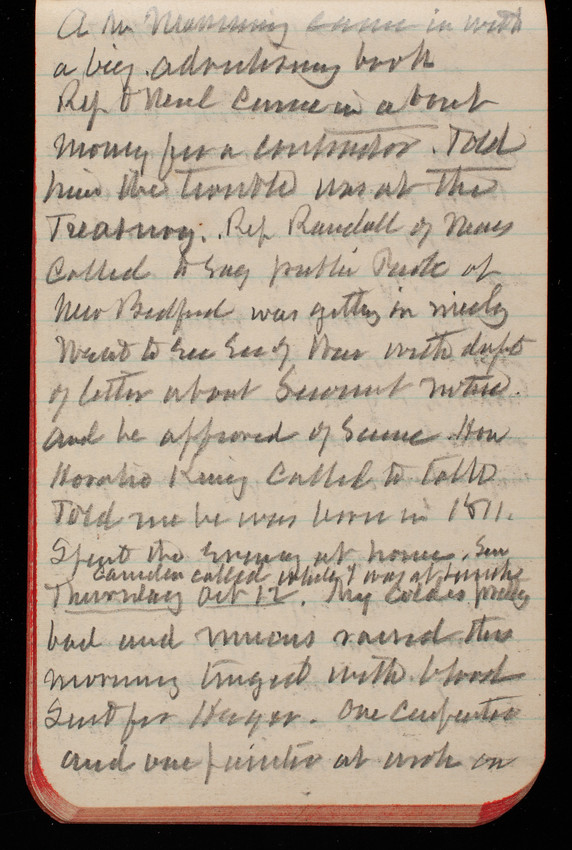 A Mr Manning came in with
a big advertising book
Rep O Neil came in about
money for a contractor. Told
him the trouble was at the
Treasury. Rep Randall of Mass
Called to say public Park at
New Bedford was getting in nicely
Went to see Sec of War with dft
of letter about Seacoast
and he approved of same. Hon
Horatio King called to talk
Told me he was born in 1811.
Spent the Evening at home. Sen
Camden called while I was at
Thursday Oct 12. My cold is pretty
bad and mucous raised this
morning tinged with blood
Sent for Hagar. One Carpenter
and one painter at work on